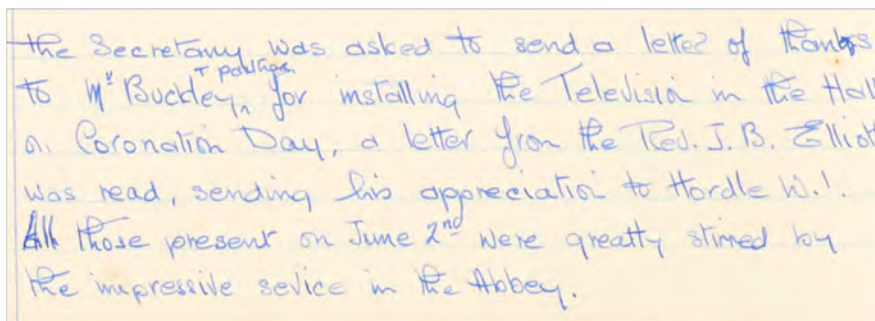 the Secretary was asked to send a letter of thanks
to Mr Buckley, for installing the Television in the Hall
on Coronation Day, a letter from the Rev. J. B. Elliott
was read, sending his appreciation to Hordle W.I.
All those present on June 2nd were greatly stirred by
the impressive sevice in the Abbey.